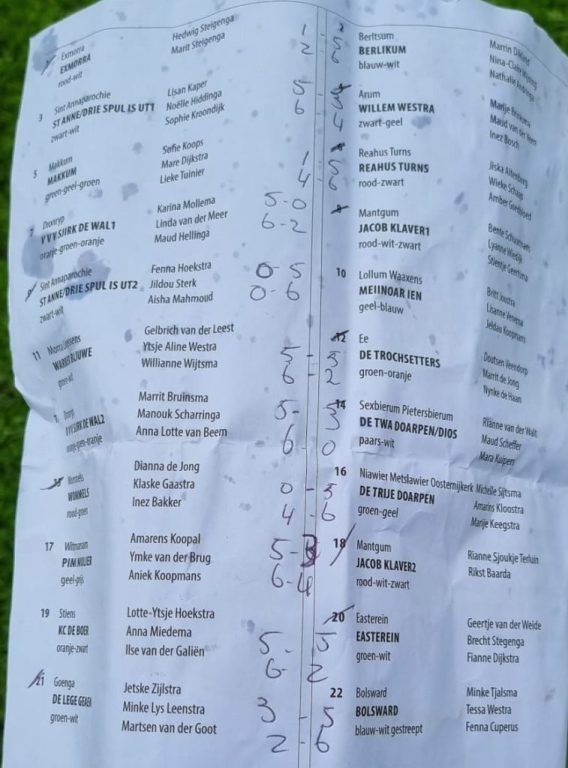 Exmorra
EXMORRA
rood-wit
Hedwig Steigenga
Marit Steigenga
1 - 5
2 - 6
Berltsum
BERLIKUM
blauw-wit
Marrin
Nina-Clair
Nathalie
3 Sint Annaparochie
ST ANNE/DRIE SPUL IS UT1
zwart-wit
Lisan Kaper
Noëlle Hiddinga
Sophie Kroondijk
5 - 3
6 - 4
Arum
WILLEM WESTRA
zwart-geel
Marije
Maud van der
Inez Bosch
5 Makkum
MAKKUM
groen-geel-groen
Sofie Koops
Mare Dijkstra
Lieke Tuinier
1 - 5
4 - 6
Reahus Turns
REAHUS TURNS
rood-zwart
Jiska Altenburg
Wieke Schaap
Amber
7 Dronryp
VVYSJIRK DE WAL1
oranje-groen-oranje
Karina Mollema
Linda van der Meer
Maud Hellinga
5-0
6-2
Mantgum
JACOB KLAVER1
rood-wit-zwart
Bente
Lyanne
Stientje Geertsma
9 Sint Annaparochie
ST ANNE/DRIE SPUL IS UT2
zwart-wit
Fenna Hoekstra
Jildou Sterk
Aisha Mahmoud
0-5
0-6
10 Lollum Waaxens
MEIINOAR IEN
geel-blauw
Britt Joustra
Lisanne Venema
Jeldau Koopmans
11
Gelbrich van der Leest
Ytsje Aline Westra
Willianne Wijtsma
5 - 3
6 - 2
12 Ee
DE TROCHSETTERS
groen-oranje
Doutsen Veendorp
Marrit de Jong
Nynke de Haan
VVYSJIRK DE WAL2
oranje-groen-oranje
Marrit Bruinsma
Manouk Scharringa
Anna Lotte van Beem
5 - 3
6 - 0
14 Sexbierum Pietersbierum
DE TWA DOARPEN/DIOS
paars-wit
Rianne van der Walt
Maud Scheffer
Mara Kuipers
Wommels
WOMMELS
rood-groen
Dianna de Jong
Klaske Gaastra
Inez Bakker
0 - 5
4 - 6
16 Niawier Metslawier Oosternijkerk
DE TRIJE DOARPEN
groen-geel
Michelle Sijtsma
Amarins Kloostra
Marije Keegstra
17 Witmarsum
PIM MULIER
geel-grijs
Amarens Koopal
Ymke van der Brug
Aniek Koopmans
5-3
6-4
18 Mantgum
JACOB KLAVER2
rood-wit-zwart
Rianne Sjoukje Terluin
Rikst Baarda
19 Stiens
KC DE BOER
oranje-zwart
Lotte-Ytsje Hoekstra
Anna Miedema
Ilse van der Galiën
5 - 5
6 - 2
20 Easterein
EASTEREIN
groen-wit
Geertje van der Weide
Brecht Stegenga
Fianne Dijkstra
21 Goenga
DE LEGE GEAEN
groen-wit
Jetske Zijlstra
Minke Lys Leenstra
Martsen van der Goot
3 - 5
2 - 6
22 Bolsward
BOLSWARD
blauw-wit gestreept
Minke Tjalsma
Tessa Westra
Fenna Cuperus